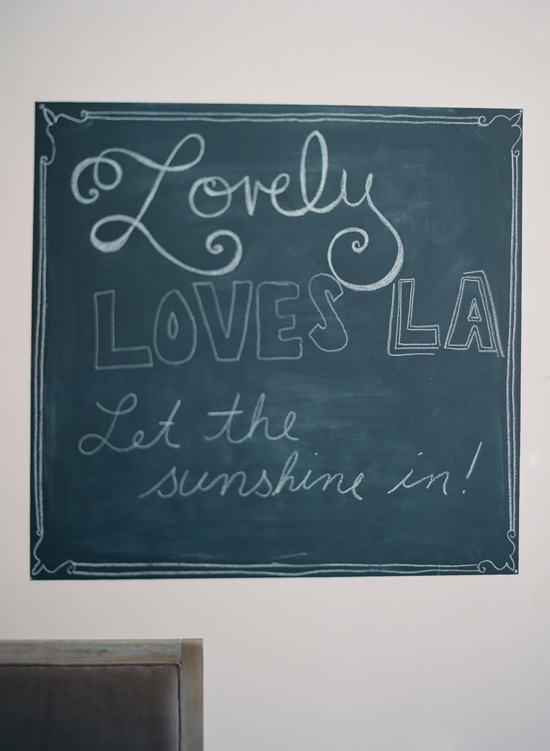 Lovely
LOVES LA
Let the
sunshine in!